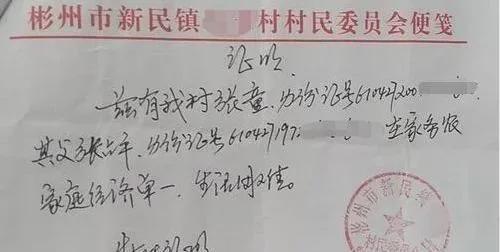 彬州市新民镇 村村民委员会便笺
证明
兹有我村张童，身份证号61042720
其父张占平，身份证号610427197 在家务农
家庭经济单一，生活困难。
特此证明
彬州市新民镇
村民委员会